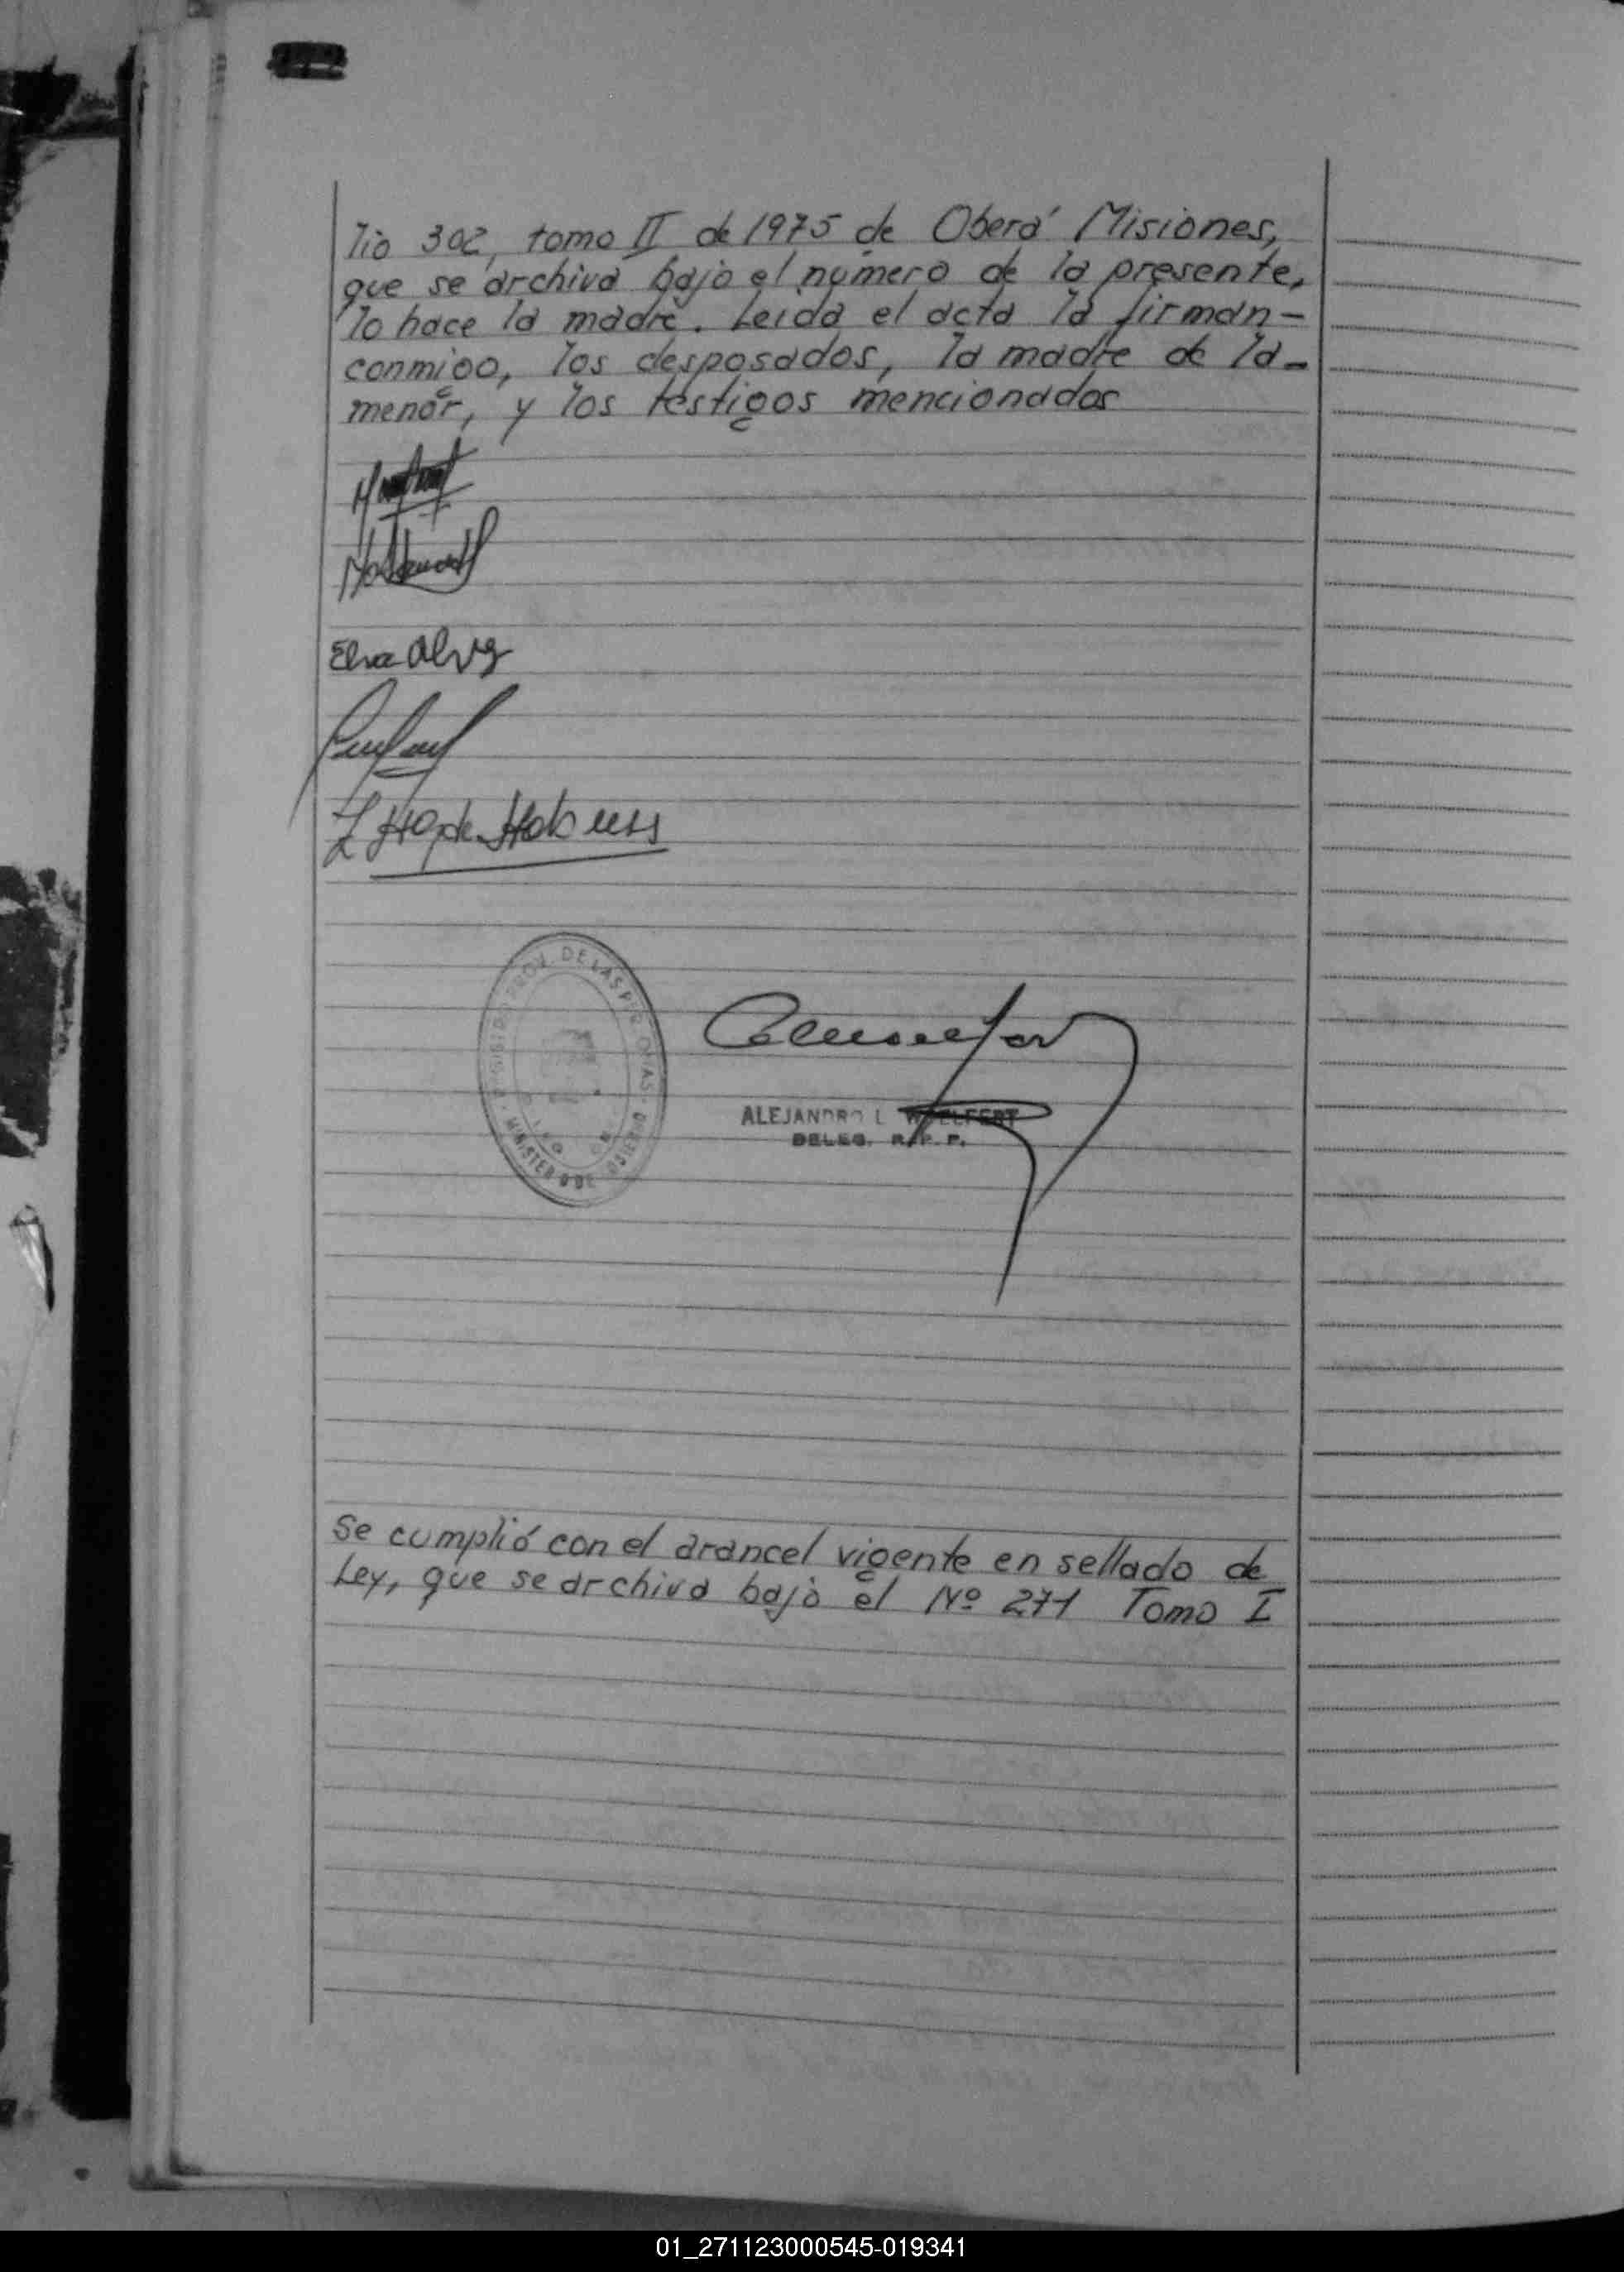 lio 302, tomo II de 1975 de Oberá Misiones,
que se archiva bajo el número de la presente,
lo hace la madre. Leida el acta la firman-
conmigo, los desposados, la madre de la-
menor, y los testigos mencionados
Elva Alvez
PROV. DE LAS PERSONAS
MINISTERIO DE GOBIERNO
ALEJANDRO L. WOELFERT
DELEG. R.P.P.
Se cumplió con el arancel vigente en sellado de
Ley, que se archiva bajo el Nº 271 Tomo I
01_271123000545-019341